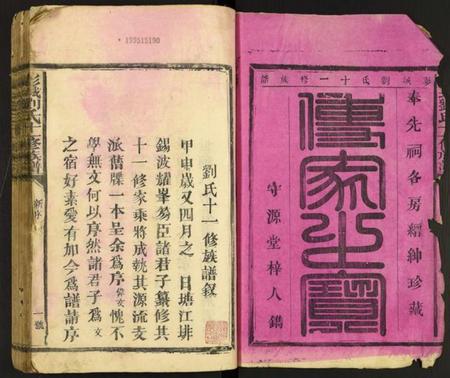 彭城劉氏十一修族譜
奉先祠各房縉紳珍藏
傳家之寶
守源堂梓人鐫
* 199515190
劉氏十一修族譜叙
甲申歲又四月之 日塘江排
錫波耀峯易臣諸君子纂修其
十一修家乘將成執其源流支
派舊牒一本呈余爲序 愧不
學無文何以序然諸君子爲文
之宿好素愛有加今爲譜請序
劉氏十一修族譜
新序
一號